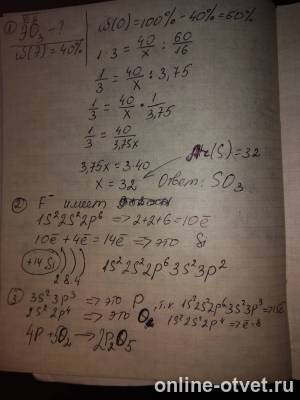 ① ЭO₃ - ?
ω(Э) = 40%
ω(O) = 100% - 40% = 60%
1 : 3 = 40/x : 60/16
1/3 = 40/x : 3,75
1/3 = 40/x * 1/3,75
1/3 = 40/3,75x
3,75x = 3·40
x = 32
Ar(S) = 32
Ответ: SO₃
② F⁻ имеет
1S²2S²2p⁶ => 2+2+6=10ē
10ē + 4ē = 14ē => это Si
+14 Si ) ) )
2 8 4
1S²2S²2p⁶3S²3p²
③ 3S²3p³ => это P, т.к 1S²2S²2p⁶3S²3p³ => 15ē
2S²2p⁴ => это O 1S²2S²2p⁴ => ē=8
4P + 5O₂ → 2P₂O₅
online-otvet.ru